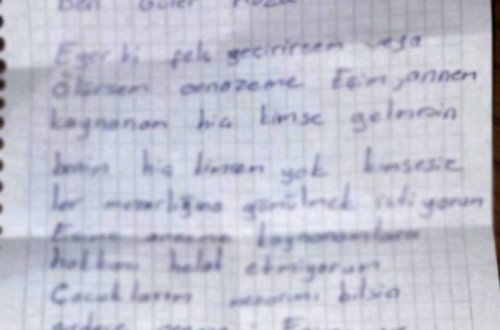 Ben Güler
Eğer ki felç geçirirsem veya
Ölürsem cenazeme Eşim, annem
kaynanam hiç kimse gelmesin
benim hiç kimsem yok kimsesiz
ler mezarlığına gömülmek istiyorum
annem kaynanamlara
hakkımı helal etmiyorum
Çocuklarım mezarımı bilsin